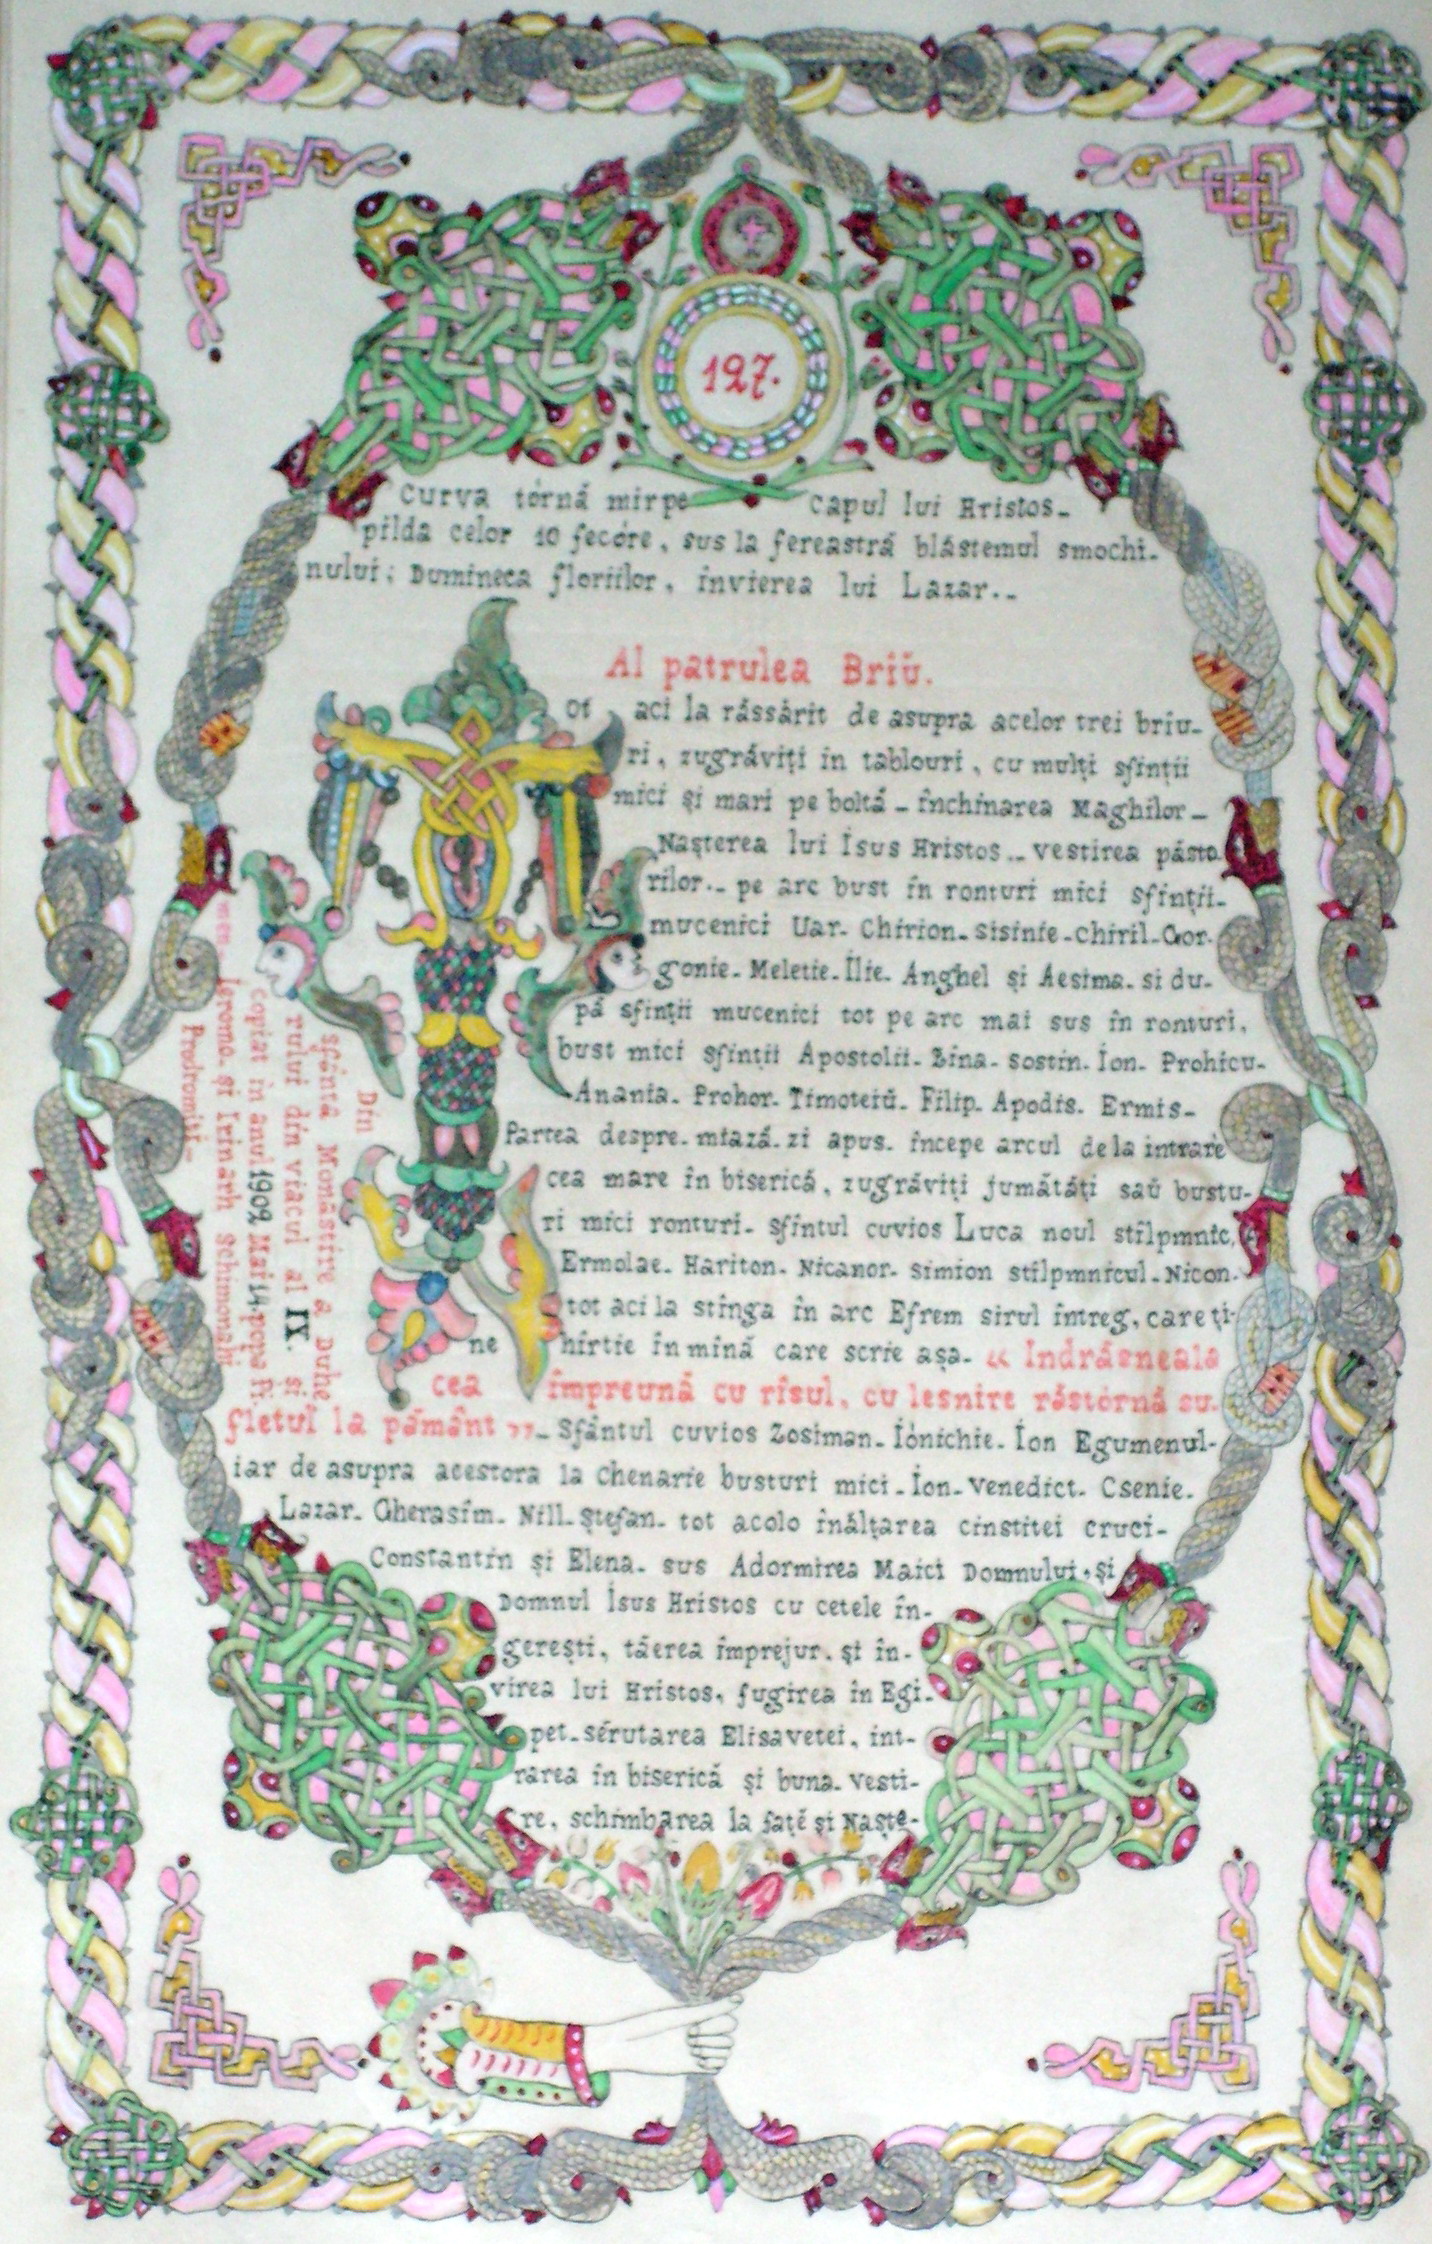 127.
Curva tórná mir pe capul lui Hristos_
pilda celor 10 fecóre, sus la fereastrá blástemul smochi-
nului; Dumineca floriilor, învierea lui Lazar._
Al patrulea Brîŭ.
Tot aci la rássárit de asupra acelor trei brîu-
ri, zugráviți in tablouri, cu mulți sfinții
mici și mari pe boltá _ închinarea Maghilor _
Nașterea lui Ísus Hristos._ vestirea pásto
rilor._ pe arc bust în ronturi mici sfinții-
mucenici Uar- Chirion- Sisinie-chiril-Gor-
gonie- Meletie- Ilie- Anghel și Aesima- si du-
pá sfinții mucenici tot pe arc mai sus în ronturi,
bust mici sfinții Apostolii- Zina- Sostin- Íon- Prohicu-
Anania- Prohor- Timoteiŭ- Filip- Apodis- Ermis-
Partea despre-miazá-zi apus- începe arcul de la intrare
cea mare în bisericá, zugráviți jumátáți saŭ bustu-
ri mici ronturi- sfîntul cuvios Luca noul stîlpmnic,
Ermolae- Hariton- Nicanor- Simion stîlpmnicul-Nicon-
tot aci la stînga în arc Efrem sirul întreg, care ți-
ne hîrtie în mînă care scrie așa- « Indrásneala
cea împreuná cu rîsul, cu lesnire rástórná su-
fletul la pámânt »_ Sfântul cuvios Zosiman- Iónichie- Íon Egumenul-
iar de asupra acestora la Chenarie busturi mici-Íon-Venedict- Csenie-
Lazar- Gherasím- Nill- Ștefan- tot acolo înálțarea cinstitei cruci-
Constantin și Elena- sus Adormirea Maici Domnului, și
Domnul Ísus Hristos cu cetele în-
gerești, táerea împrejur, și în-
virea lui Hristos, fugirea în Egi-
pet- sérutarea Elisavetei, int-
rarea în bisericá și buna-vesti-
re, schimbarea la fațé și Naște-
Din
sfântă Monăstire a Duhe
rului din viacul al IX. și
copiat în anul 1902 Mai 14, popa Fi.
Ieromo- și Irinarh Schimonahi
Prodromiți-